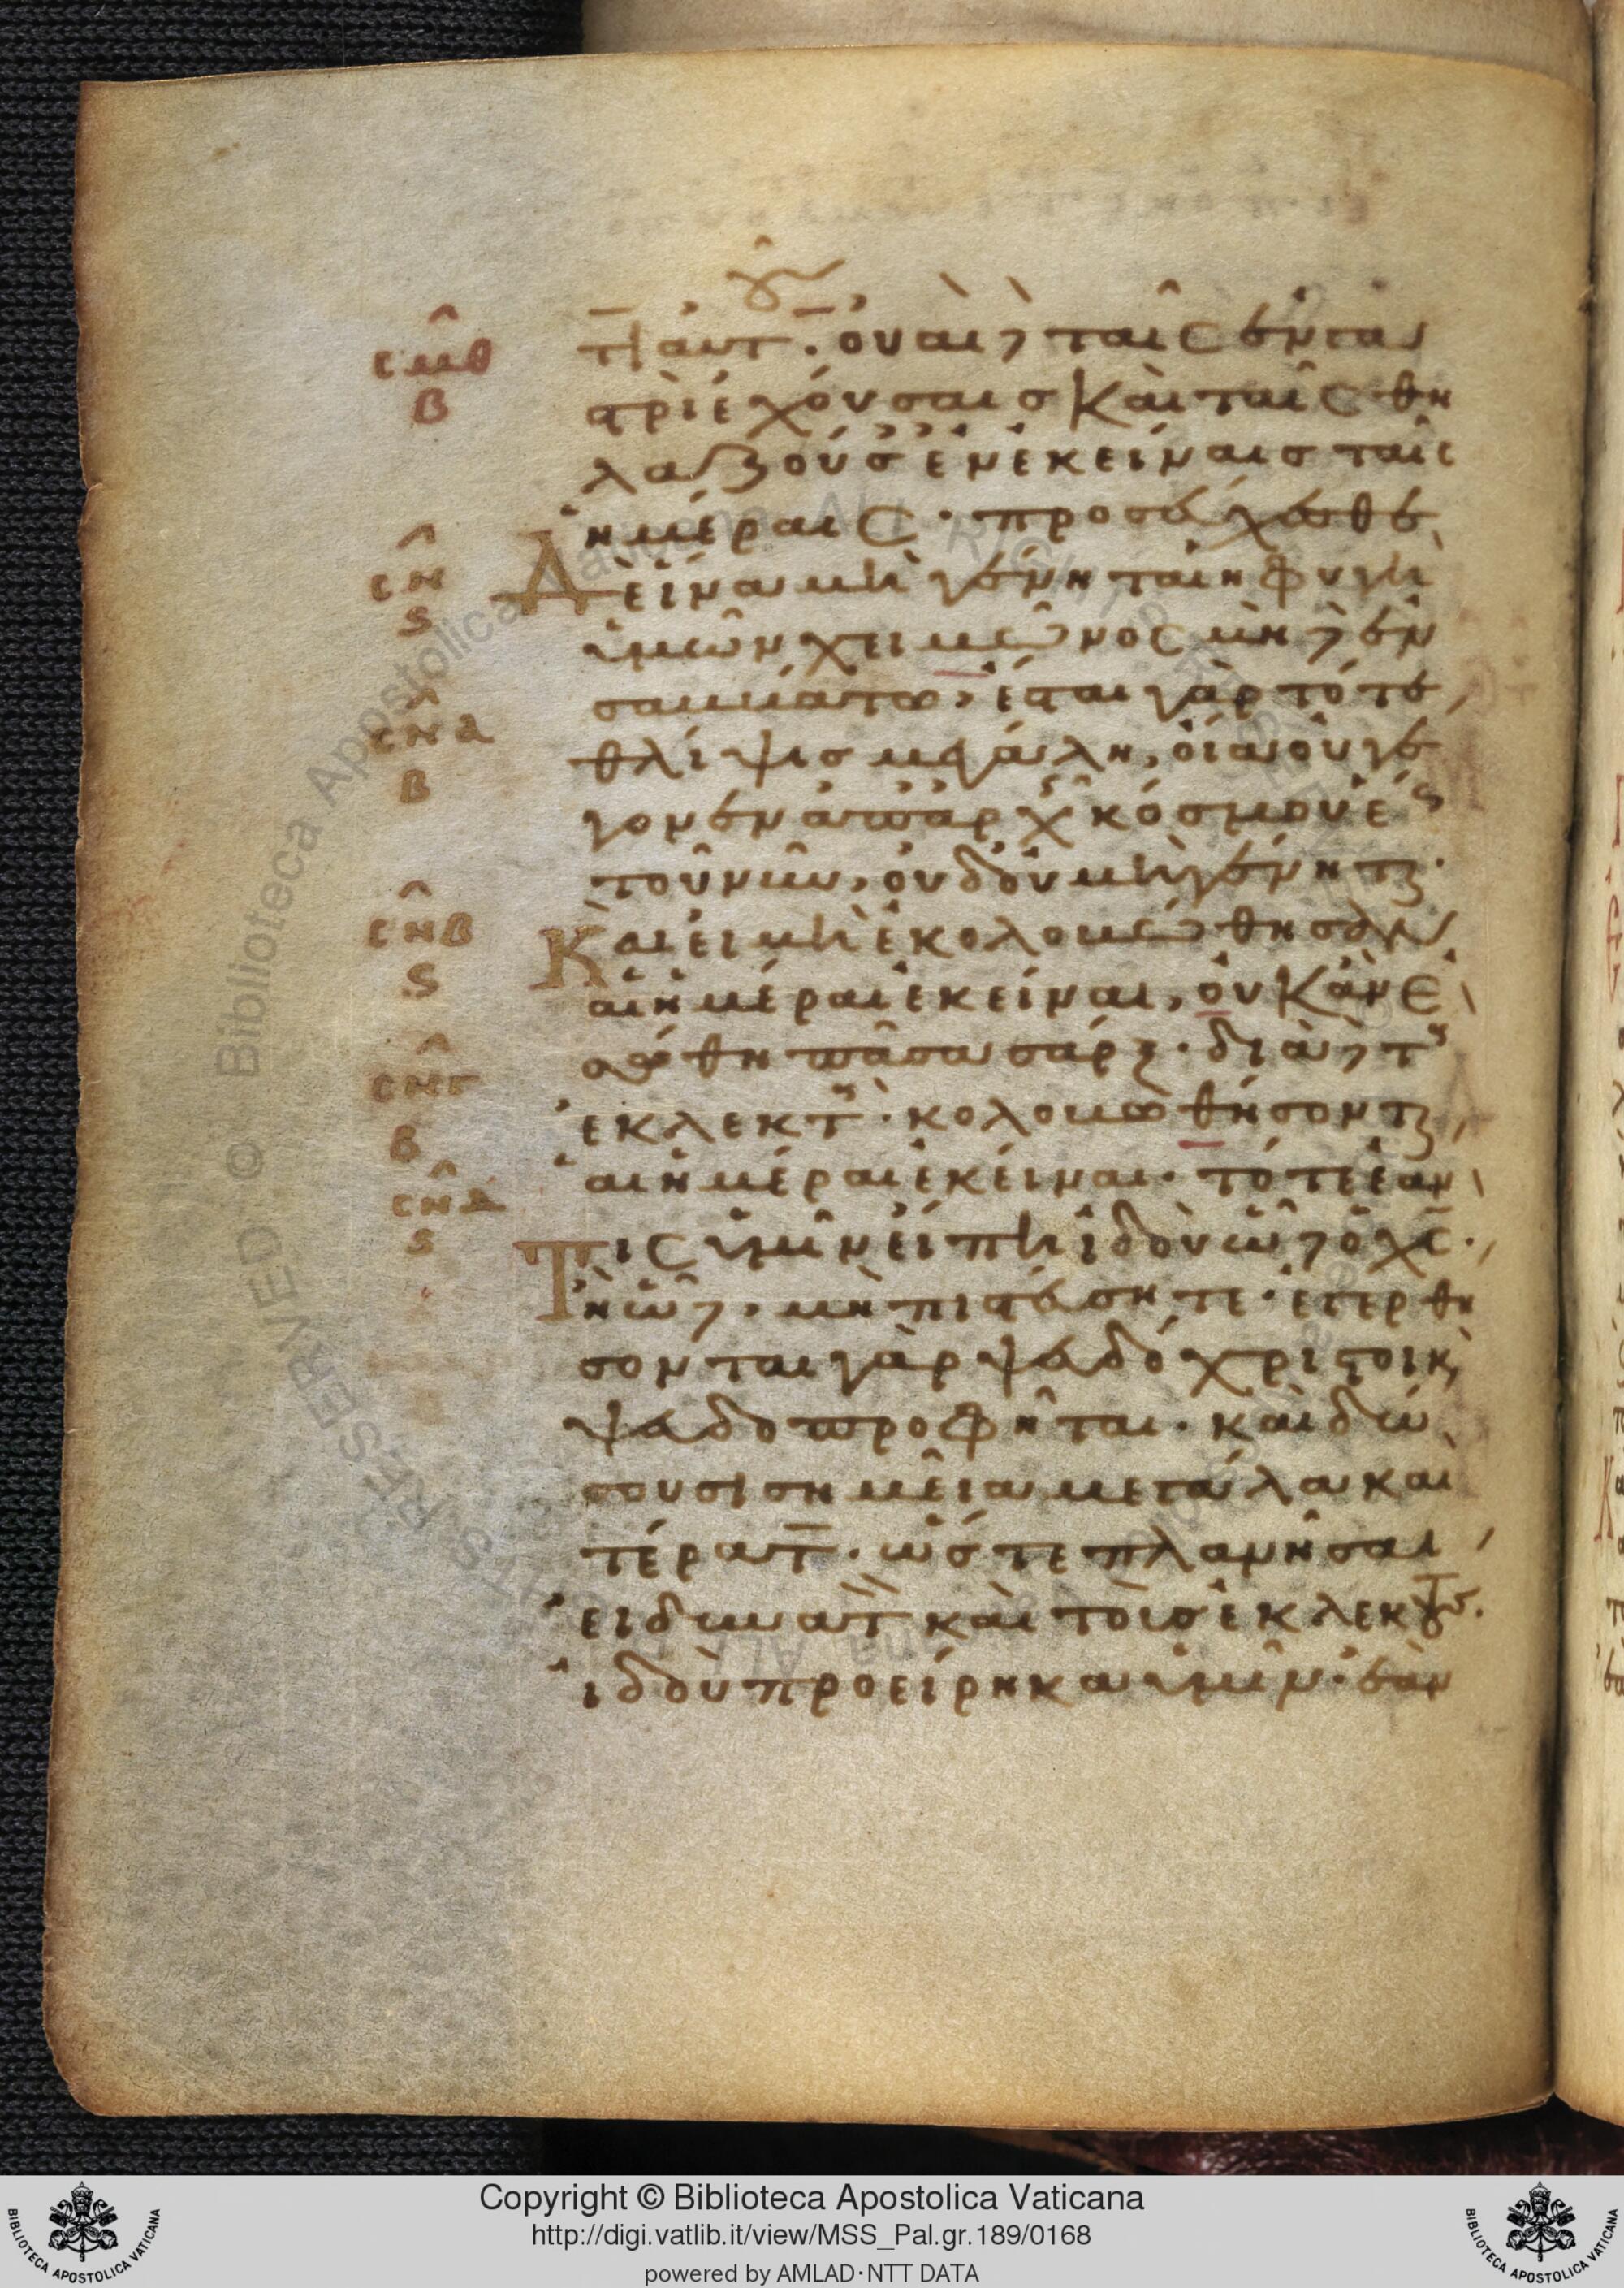 τ̅ι αὐτ̅. ὀυαὶ ὶ ταῖς ἐν γα
στρὶ ἐχόυσαισ Καὶ ταῖς θη
λαζούσ ἐν ἐκείναισ ταῖς
ἡμέραις · προσεύχεσθε
ϲμθ
β
Δὲ ἵνα μὴ γένηται ἡ φυγὴ
ὑμῶν χειμῶνος μὴ ὶ ἐν
σαμμάτω, ἔσται γὰρ τότε
θλίψισ μεγάλη, ὁία ὀυ γέ
γονεν ἀπαρχ κόσμου ἕς
τοῦ νῦν, ὀυδ ὀυ μὴ γένητ·
ϲν
ς
ϲνα
β
Καὶ εἰ μὴ ἐκολοβώθησαν
αἱ ἡμέραι ἐκείναι, ὀυΚ ἂν ἐ
σώθη πᾶσα σάρξ · διὰ ὶ τ
ἐκλεκτ · κολοβωθήσοντ
αἱ ἡμέραι ἐκείναι · τότε ἐὰν
ϲνβ
ς
ϲνγ
β
Τις ὑμῖν εἴπη ἰδοὺ ὧ ὶ ὁ χς̅ ·
ἢ ὧ ὶ, μὴ πιστέυσητε · ἐγερθη
σονται γὰρ ψευδόχριστοι κ
ψευδοπροφῆται · καὶ δώ
σουσι σημεῖα μεγάλα και
τέρατ̅ · ὥστε πλανῆσαι
ει δυνατ̅ καὶ τοὺσ ἐκλεκτούσ.
ἰδοὺ προείρηκα ὑμῖν · ἐὰν
ϲνδ
ς
Copyright © Biblioteca Apostolica Vaticana
http://digi.vatlib.it/view/MSS_Pal.gr.189/0168
powered by AMLAD·NTT DATA
BIBLIOTECA APOSTOLICA VATICANA
BIBLIOTECA APOSTOLICA VATICANA